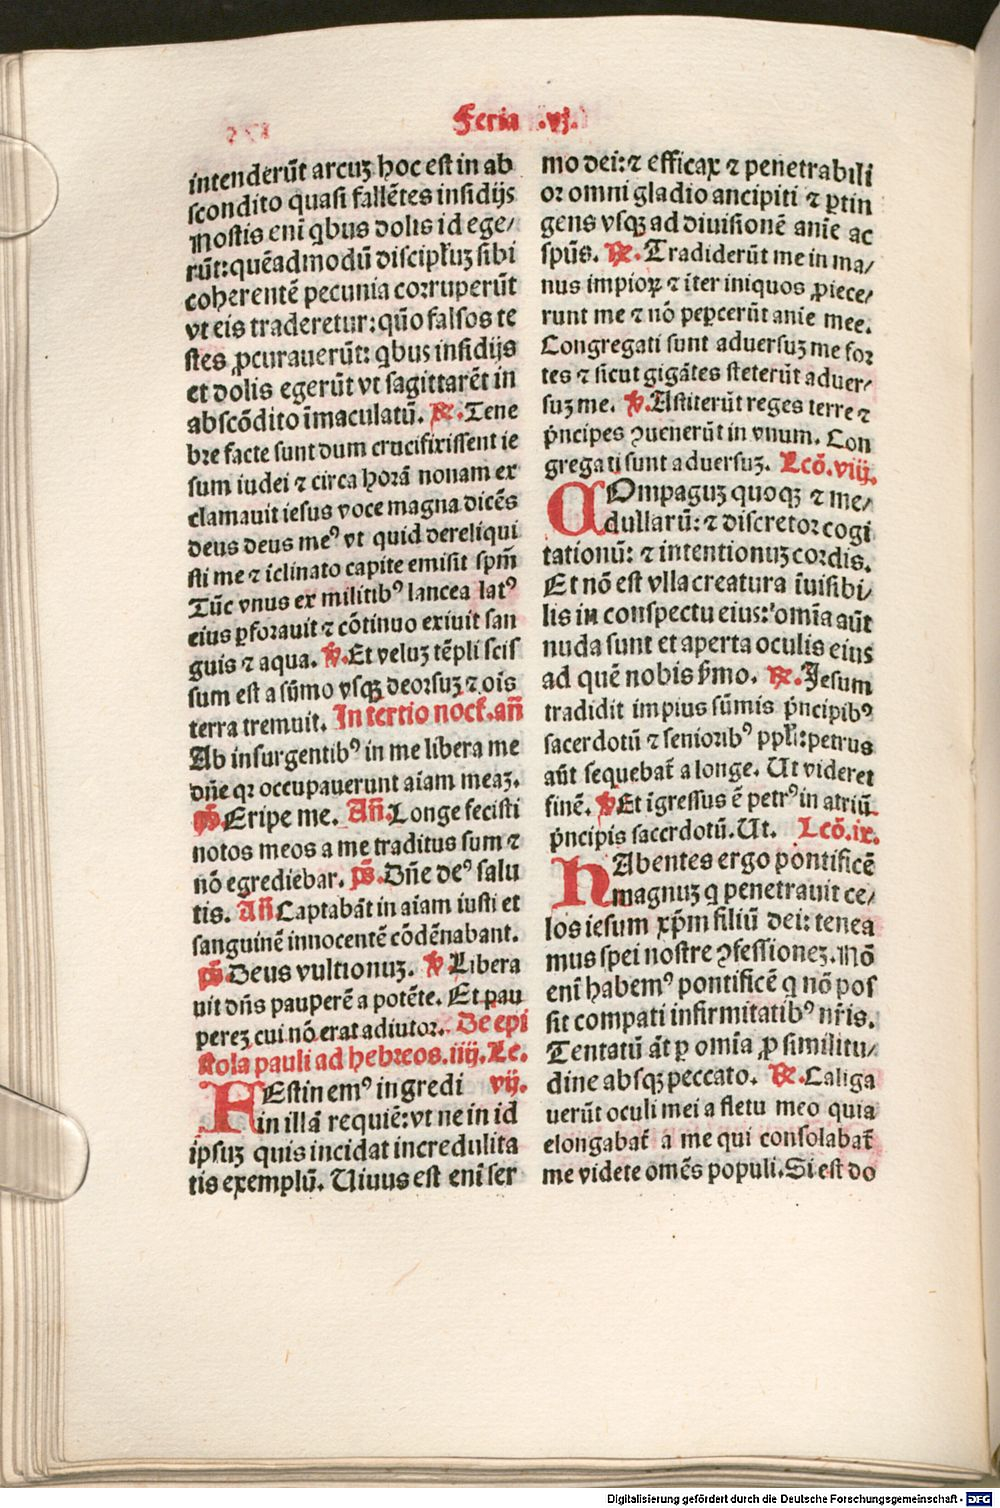 Feria .vj.
intenderūt arcuꝫ hoc est in ab
scondito quasi fallētes insidijs
Nostis enī qbus dolis id ege/
rūt: quēadmodū discipłuꝫ sibi
coherentē pecunia corruperūt
vt eis traderetur: qūo falsos te
stes ꝓcurauerūt: qbus insidijs
et dolis egerūt vt sagittarēt in
abscōdito īmaculatū. ℟. Tene
bre facte sunt dum crucifixissent ie
sum iudei ⁊ circa horā nonam ex
clamauit iesus voce magna dicēs
deus deus meꝰ vt quid dereliqui
sti me ⁊ īclinato capite emisit spm̄
Tūc vnus ex militibꝰ lancea latꝰ
eius ꝑforauit ⁊ cōtinuo exiuit san
guis ⁊ aqua. ℣. Et veluꝫ tēpli scis
sum est a sūmo vsqꝫ deorsuꝫ ⁊ ois
terra tremuit. In tertio noct̄. an̄
Ab insurgentibꝰ in me libera me
dn̄e qꝛ occupauerunt aīam meaꝫ.
p̄s. Eripe me. An̄. Longe fecisti
notos meos a me traditus sum ⁊
nō egrediebar. ps̄. Dn̄e deꝰ salu
tis. An̄ Captabāt in aīam iusti et
sanguinē innocentē cōdēnabant.
ps̄. Deus vultionuꝫ. ℣. Libera
uit dn̄s pauperē a potēte. Et pau
pereꝫ cui nō erat adiutor. De epi
stola pauli ad hebreos. iiij. Le.
FEstinemꝰ ingredi vij.
in illā requiē: vt ne in id
ipsuꝫ quis incidat incredulita
tis exemplū. Uiuus est enī ser
mo dei: ⁊ efficax ⁊ penetrabili
or omni gladio ancipiti ⁊ ꝑtin
gens vsqꝫ ad diuisionē anīe ac
spūs. ℟. Tradiderūt me in ma/
nus impioꝝ ⁊ īter iniquos ꝓiece/
runt me ⁊ nō peꝑcerūt anīe mee.
Congregati sunt aduersuꝫ me for
tes ⁊ sīcut gigātes steterūt aduer/
suꝫ me. ℣. Astiterūt reges terre ⁊
pn̄cipes ꝯuenerūt in vnum. Con
gregati sunt aduersuꝫ. Lcō. viij.
COmpaguꝫ quoqꝫ ⁊ me/
dullarū: ⁊ discretor cogi
tationū: ⁊ intentionuꝫ cordis.
Et nō est vlla creatura īuisibi/
lis in conspectu eius: omīa aūt
nuda sunt et aperta oculis eius
ad quē nobis s̄mo. ℟. Jesum
tradidit impius sūmis pn̄cipibꝰ
sacerdotū ⁊ senioribꝰ ppłi: petrus
aūt sequebat̄ a longe. Ut videret
finē. ℣. Et īgressus ē petrꝰ in atriū
pn̄cipis sacerdotū. Ut. Lcō. ix.
HAbentes ergo pontificē
magnuꝫ q penetrauit ce/
los iesum xp̄m filiū dei: tenea
mus spei nostre ꝯfessioneꝫ. Nō
enī habemꝰ pontificē q nō pos
sit compati infirmitatibꝰ nr̄is.
Tentatū āt ꝑ omīa ꝓ similitu/
dine absqꝫ peccato. ℟. Caliga
uerūt oculi mei a fletu meo quia
elongabat̄ a me qui consolabat̄
me videte omēs populi. Si est do
Digitalisierung gefördert durch die Deutsche Forschungsgemeinschaft - DFG